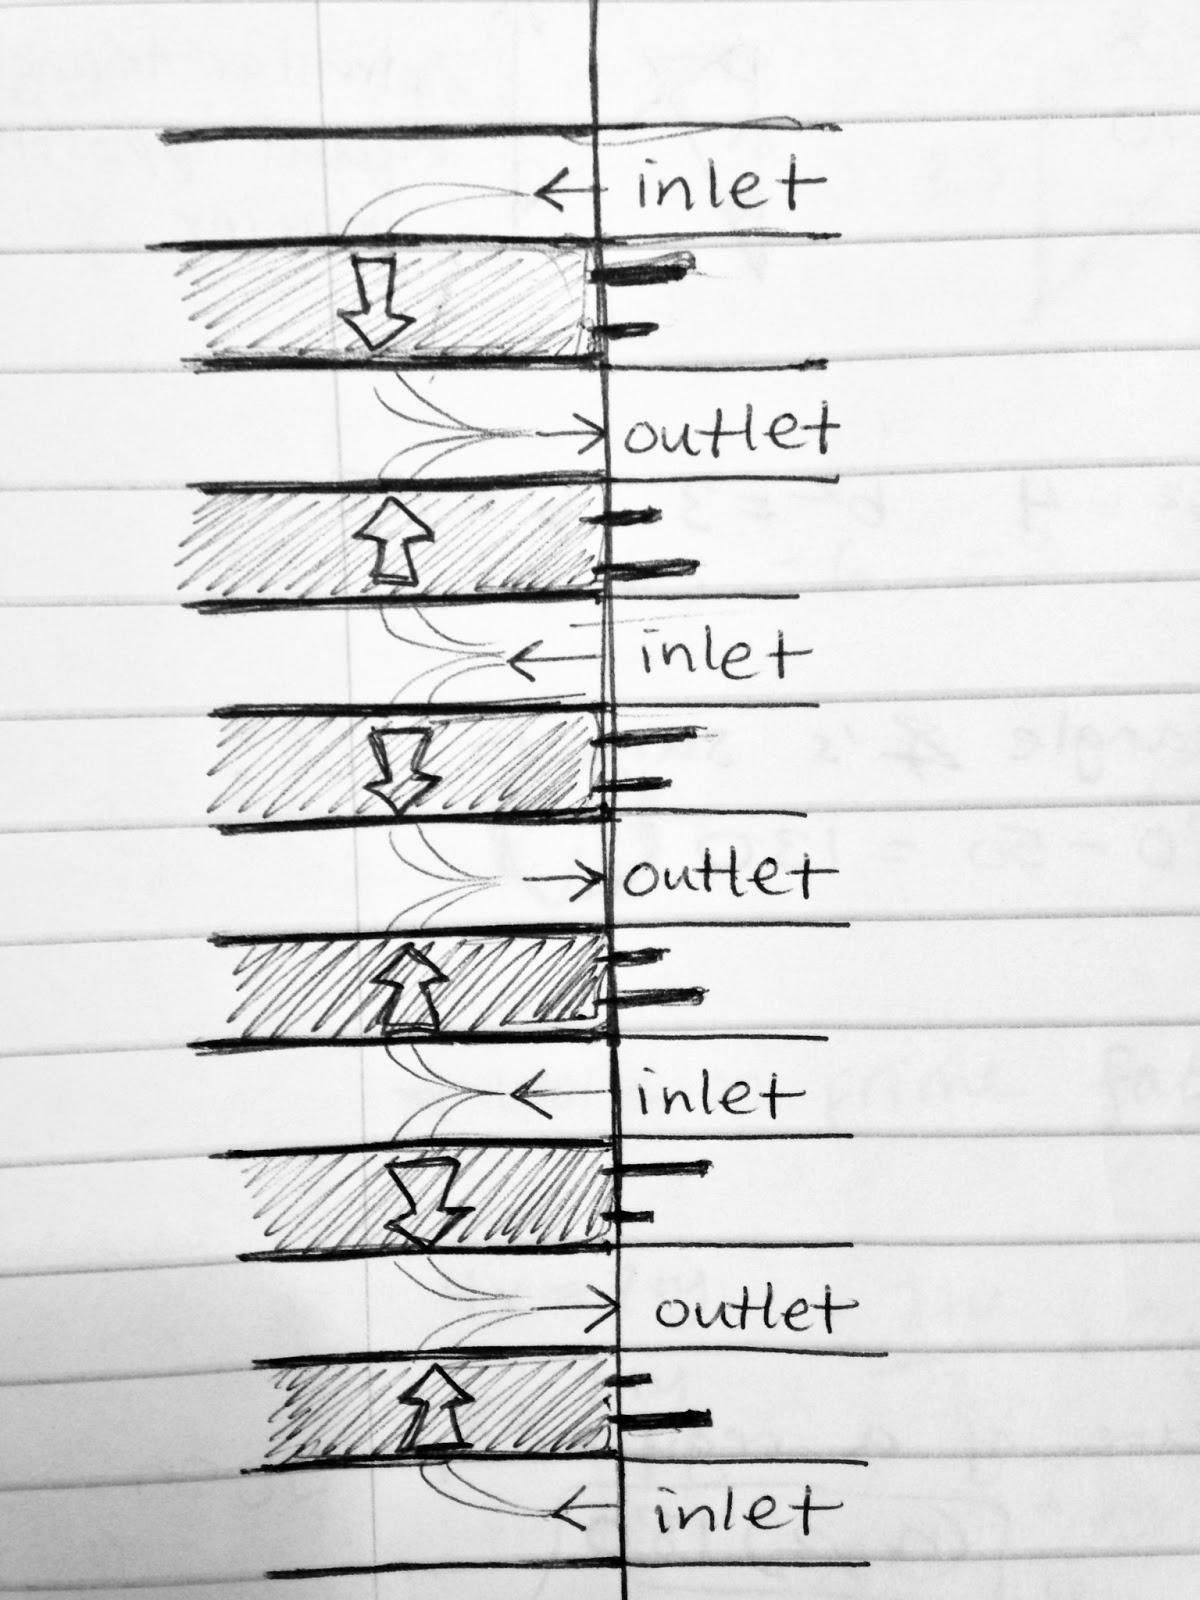 inlet
outlet
inlet
outlet
inlet
outlet
inlet